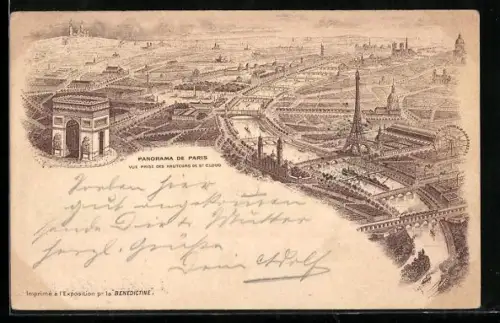 PANORAMA DE PARIS
VUE PRISE DES HAUTEURS DE ST CLOUD
Soeben hier
gut angekommen
sende Dir l. Mutter
herzl. Grüße
Dein Adolf
Imprimé à l'Exposition pr la "BÉNÉDICTINE".